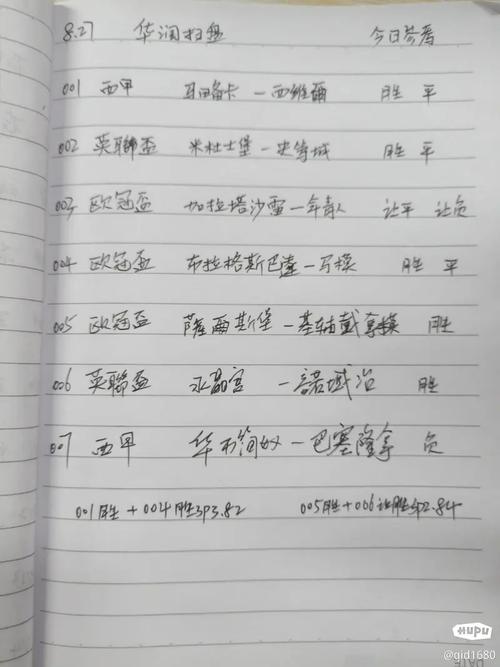 8.27 华润扫盘 今日参考
001 西甲 马略卡 — 西维爾 胜 平
002 英聯盃 米杜士堡 — 史篤城 胜 平
003 欧冠盃 加拉塔沙雷 — 年青人 让平 让负
004 欧冠盃 布拉格斯巴達 — 马模 胜 平
005 欧冠盃 薩爾斯堡 — 基辅戴拿模 胜
006 英聯盃 水晶宫 — 諾域治 胜
007 西甲 华利简奴 — 巴塞隆拿 负
001胜+004胜sp3.82 005胜+006让胜sp2.84
HUPU
@gid1680